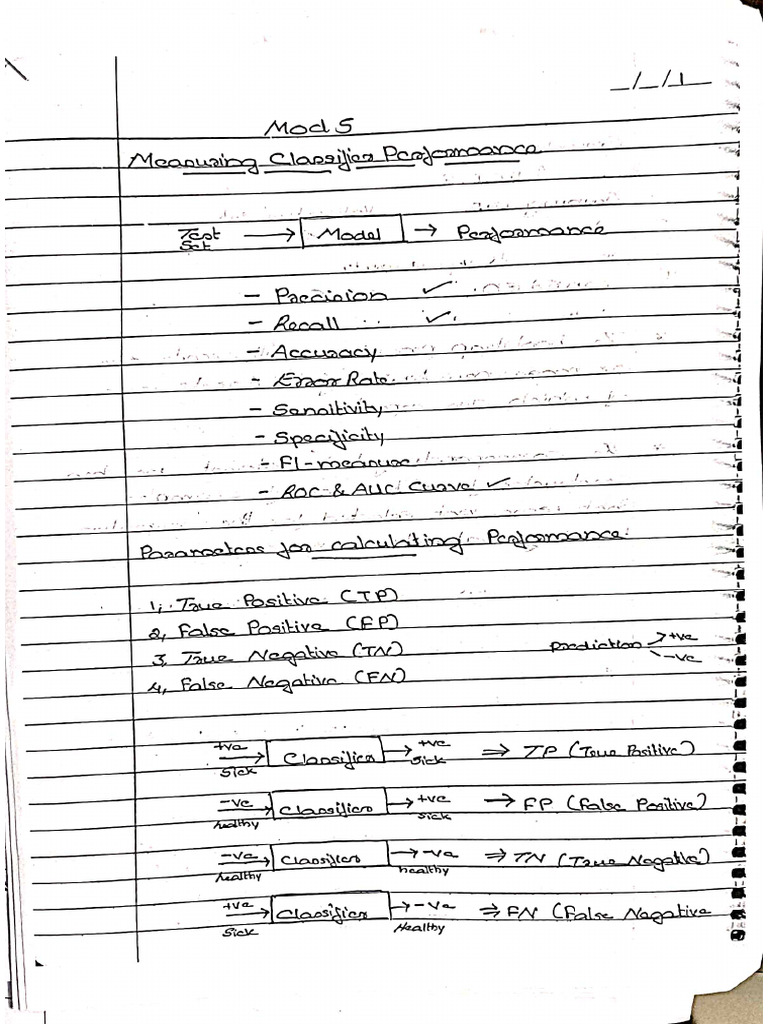 _/_/1__
Mod 5
Measuring Classifier Performance
Test Set → Model → Performance
- Precision ✓
- Recall ✓
- Accuracy
- Error Rate
- Sensitivity
- Specificity
- F1-measure
- ROC & AUC Curve ✓
Parameters for calculating Performance.
1, True Positive (TP)
2, False Positive (FP)
3, True Negative (TN)
prediction → +ve
→ -ve
4, False Negative (FN)
+ve → Classifier → +ve ⇒ TP (True Positive)
Sick sick
-ve → Classifier → +ve → FP (False Positive)
healthy sick
-ve → Classifier → -ve ⇒ TN (True Negative)
healthy healthy
+ve → Classifier → -ve ⇒ FN (False Negative
Sick Healthy